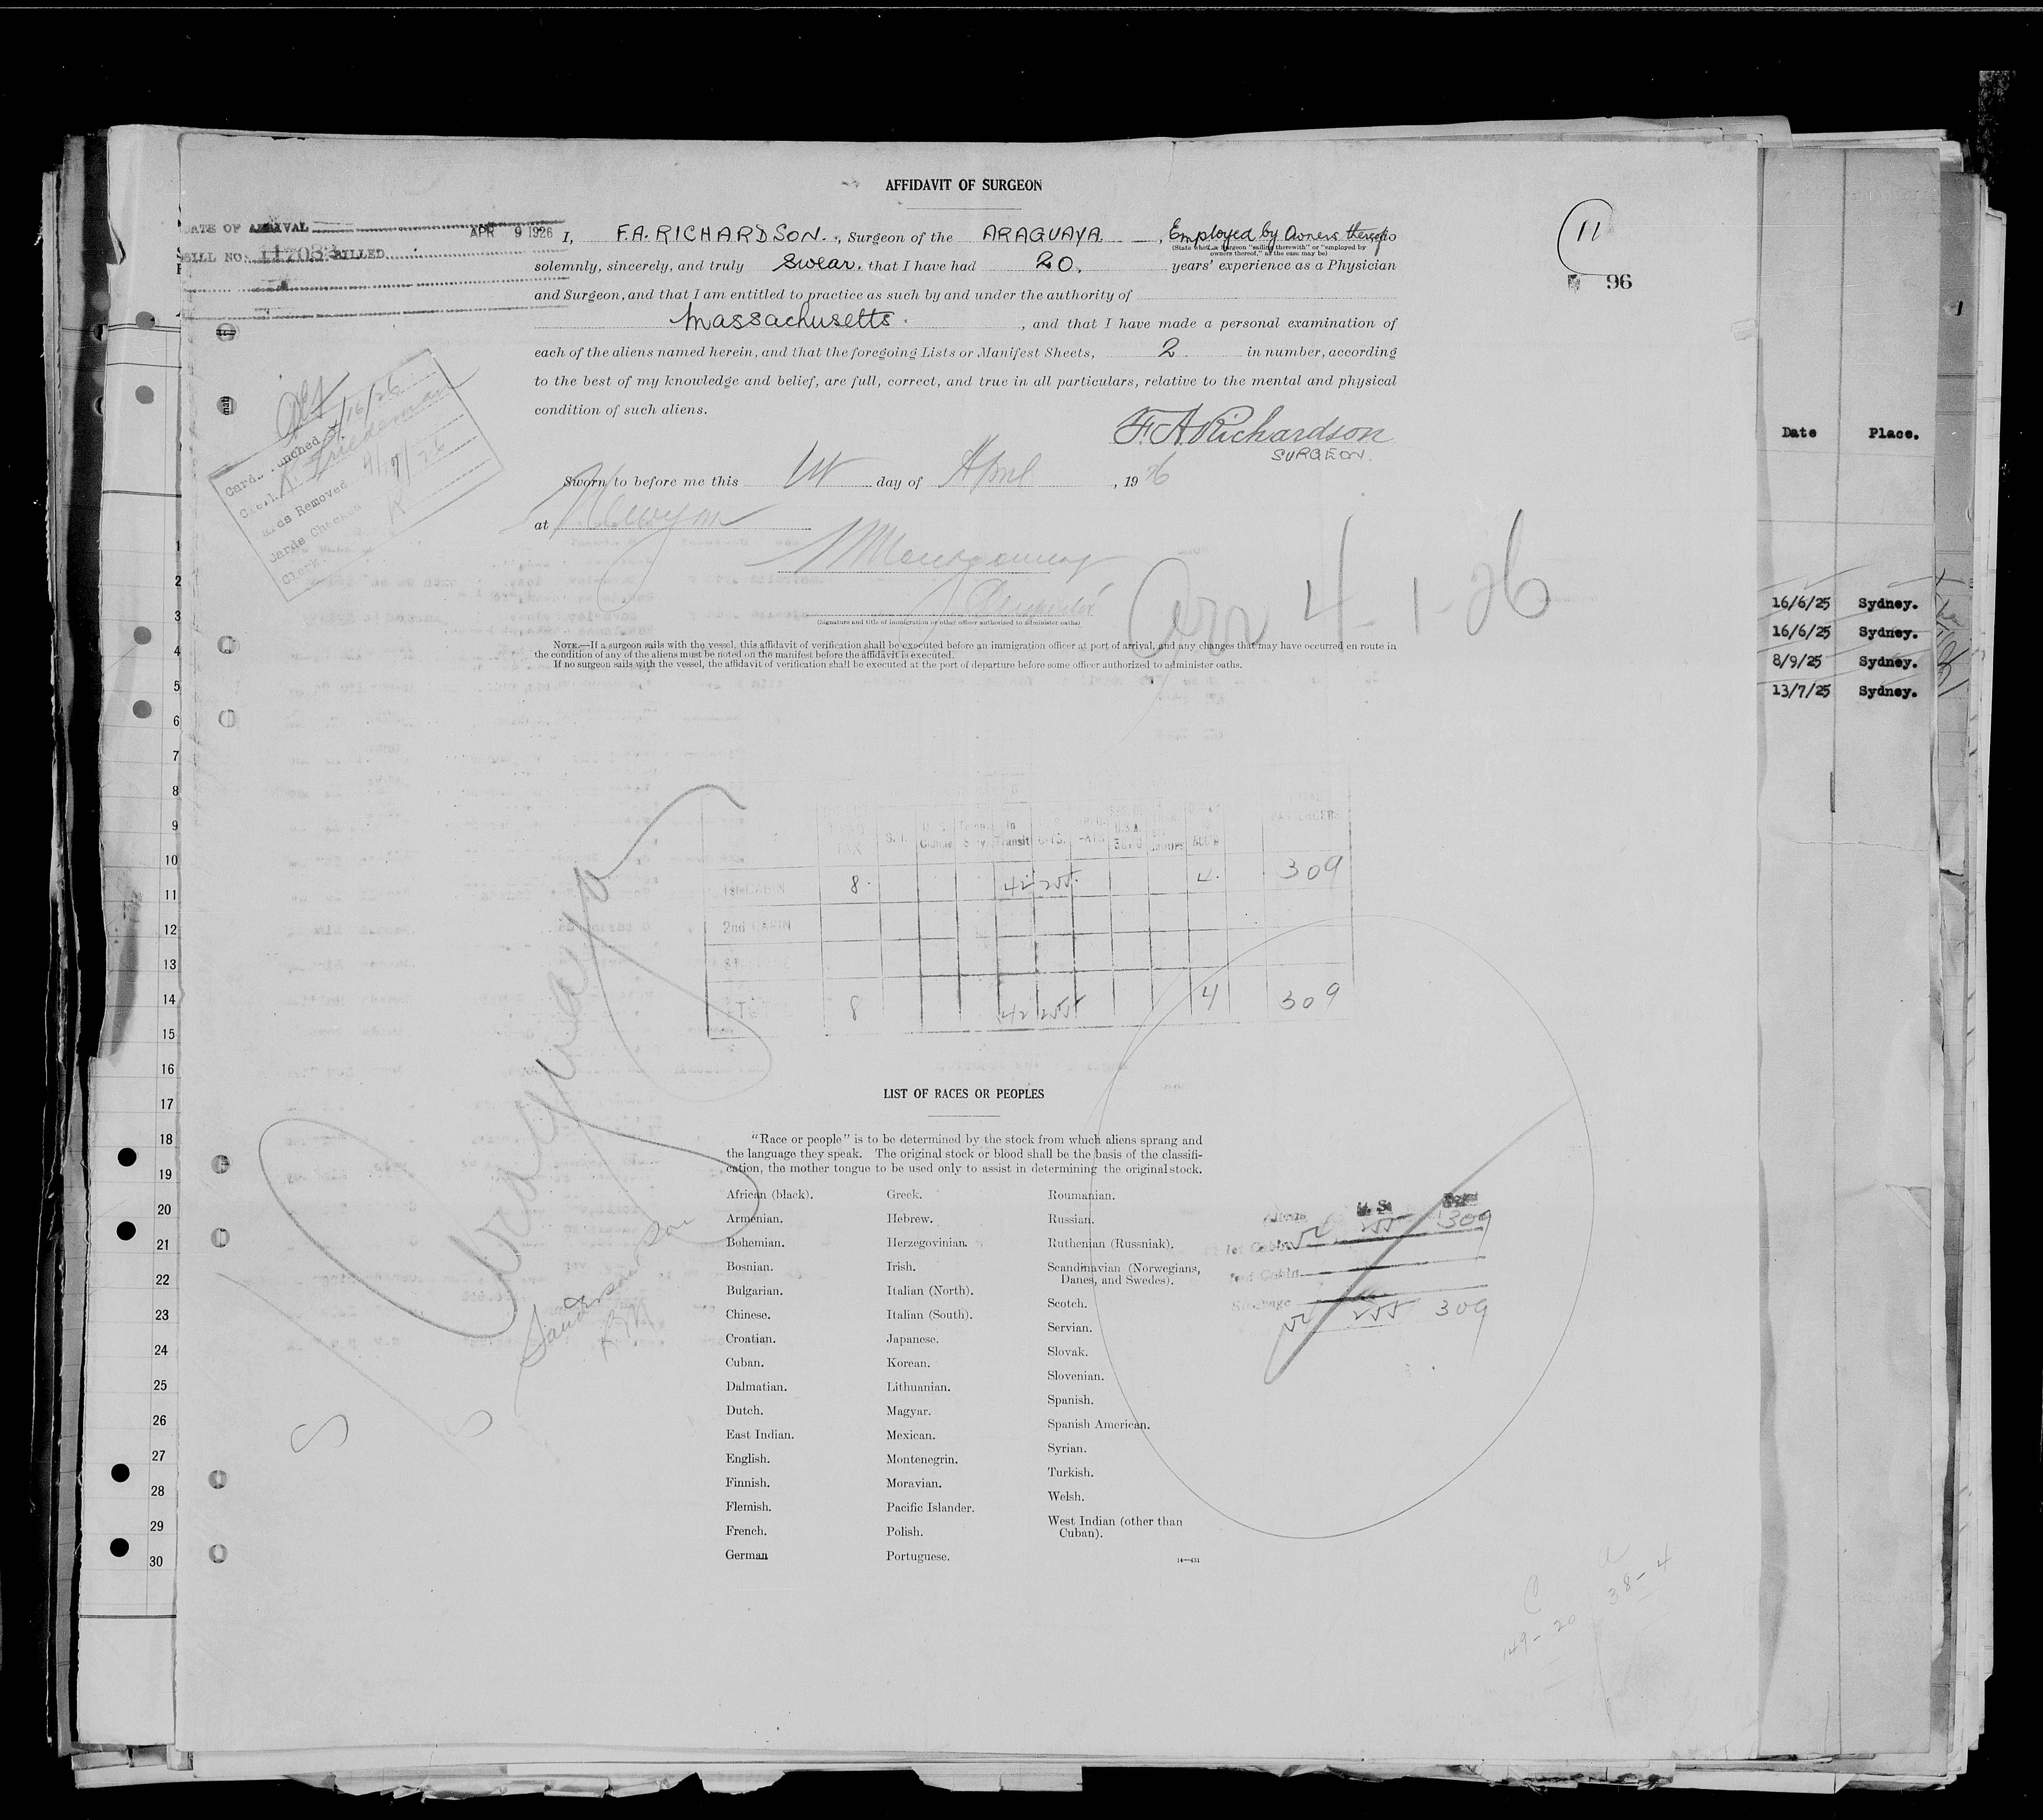 AFFIDAVIT OF SURGEON
DATE OF ARRIVAL APR 9 1926
BILL NO. 117083 BILLED
11
96
I, F.A. RICHARDSON., Surgeon of the ARAGUAYA, Employed by Owners thereof do
(State whether Surgeon "sailing therewith" or "employed by
owners thereof," as the case may be)
solemnly, sincerely, and truly swear, that I have had 20. years' experience as a Physician
and Surgeon, and that I am entitled to practice as such by and under the authority of
Massachusetts., and that I have made a personal examination of
each of the aliens named herein, and that the foregoing Lists or Manifest Sheets, 2 in number, according
to the best of my knowledge and belief, are full, correct, and true in all particulars, relative to the mental and physical
condition of such aliens.
F. A. Richardson
SURGEON.
Sworn to before me this 1st day of April, 1926
at
(Signature and title of immigration or other officer authorized to administer oaths)
Arr 4-1-26
NOTE.—If a surgeon sails with the vessel, this affidavit of verification shall be executed before an immigration officer at port of arrival, and any changes that may have occurred en route in
the condition of any of the aliens must be noted on the manifest before the affidavit is executed.
If no surgeon sails with the vessel, the affidavit of verification shall be executed at the port of departure before some officer authorized to administer oaths.
4/16/26
Friedman
Cards Removed 4/17/26
Cards Checked
Clerk
Date Place.
16/6/25 Sydney.
16/6/25 Sydney.
8/9/25 Sydney.
13/7/25 Sydney.
1
2
3
4
5
6
7
8
9
10
11
12
13
14
15
16
17
18
19
20
21
22
23
24
25
26
27
28
29
30
Araguaya
Sanderson
TAX S. T. In Transit U.S.A. PASSENGERS
1st CABIN 8 42 255 4 309
2nd CABIN
8 42 255 4 309
LIST OF RACES OR PEOPLES
"Race or people" is to be determined by the stock from which aliens sprang and
the language they speak. The original stock or blood shall be the basis of the classifi-
cation, the mother tongue to be used only to assist in determining the original stock.
African (black).
Armenian.
Bohemian.
Bosnian.
Bulgarian.
Chinese.
Croatian.
Cuban.
Dalmatian.
Dutch.
East Indian.
English.
Finnish.
Flemish.
French.
German
Greek.
Hebrew.
Herzegovinian.
Irish.
Italian (North).
Italian (South).
Japanese.
Korean.
Lithuanian.
Magyar.
Mexican.
Montenegrin.
Moravian.
Pacific Islander.
Polish.
Portuguese.
Roumanian.
Russian.
Ruthenian (Russniak).
Scandinavian (Norwegians,
Danes, and Swedes).
Scotch.
Servian.
Slovak.
Slovenian.
Spanish.
Spanish American.
Syrian.
Turkish.
Welsh.
West Indian (other than
Cuban).
14—431
Aliens U. S.
1st Cabin 255 309
2nd Cabin
Steerage
255 309
149-20
38-4